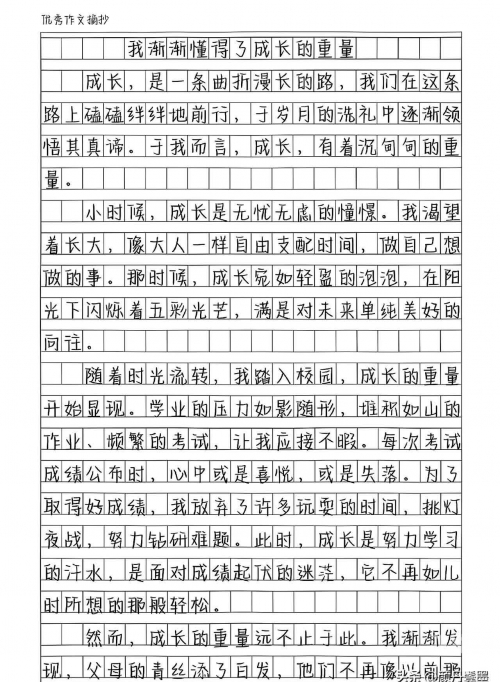 优秀作文摘抄
我渐渐懂得了成长的重量
成长，是一条曲折漫长的路，我们在这条
路上磕磕绊绊地前行，于岁月的洗礼中逐渐领
悟其真谛。于我而言，成长，有着沉甸甸的重
量。
小时候，成长是无忧无虑的憧憬。我渴望
着长大，像大人一样自由支配时间，做自己想
做的事。那时候，成长宛如轻盈的泡泡，在阳
光下闪烁着五彩光芒，满是对未来单纯美好的
向往。
随着时光流转，我踏入校园，成长的重量
开始显现。学业的压力如影随形，堆称如山的
作业、频繁的考试，让我应接不暇。每次考试
成绩公布时，心中或是喜悦，或是失落。为了
取得好成绩，我放弃了许多玩耍的时间，挑灯
夜战，努力钻研难题。此时，成长是努力学习
的汗水，是面对成绩起伏的迷茫，它不再如儿
时所想的那般轻松。
然而，成长的重量远不止于此。我渐渐发
现，父母的青丝添了白发，他们不再像以前那
头条